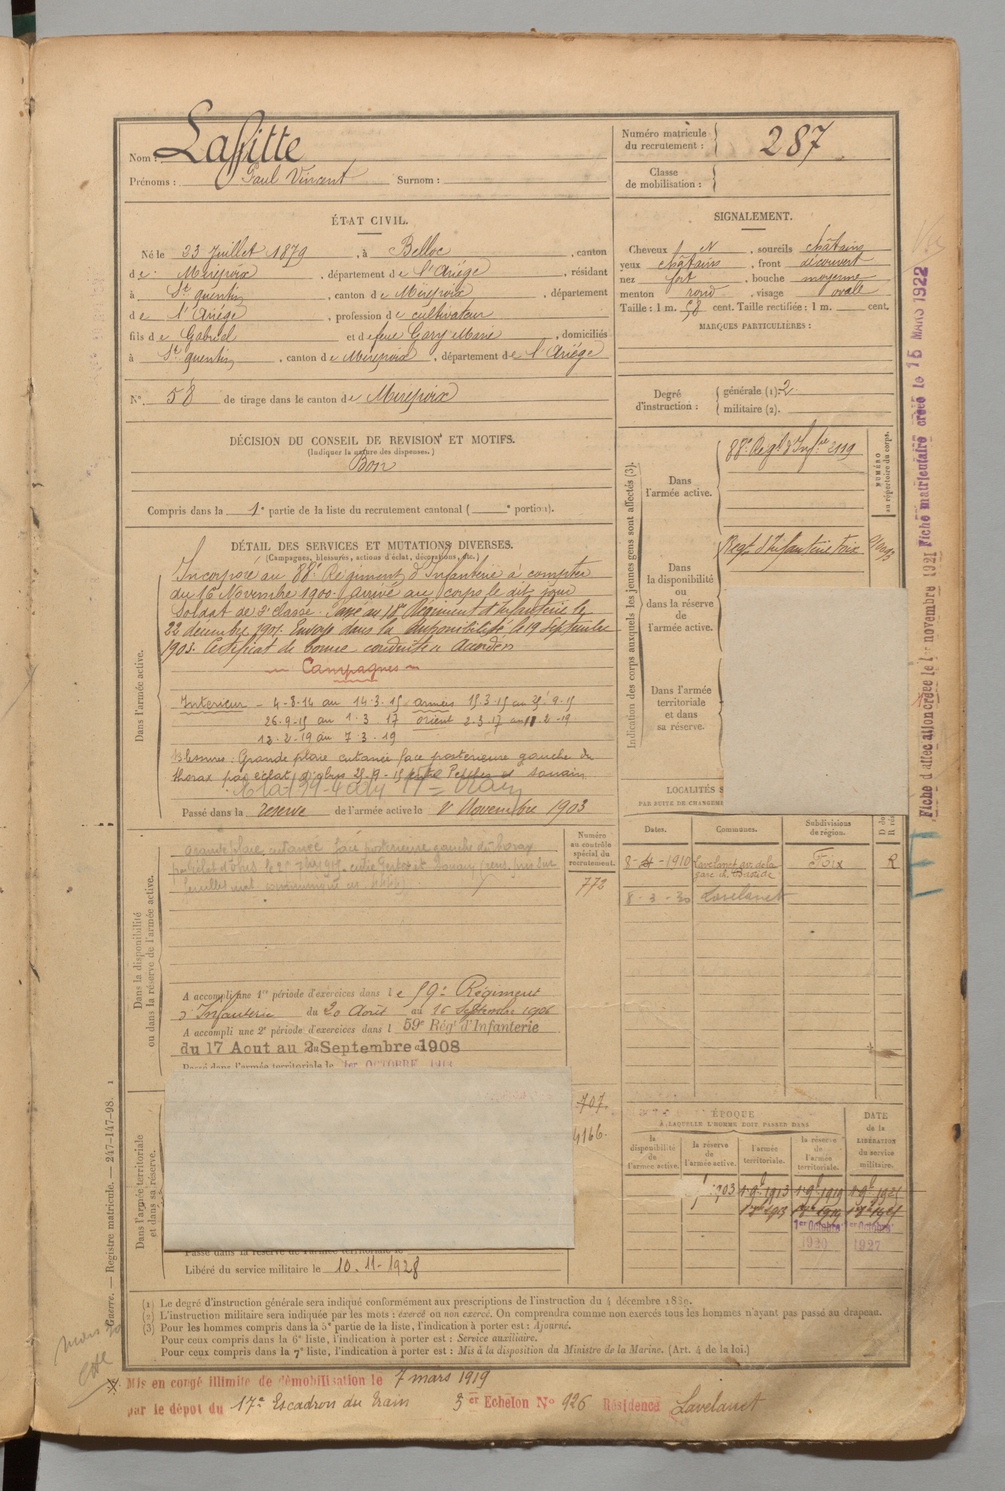 Nom : Lafitte
Prénoms : Paul Vincent Surnom :
Numéro matricule du recrutement : 287
Classe de mobilisation :
ÉTAT CIVIL.
Né le 23 Juillet 1879, à Belloc, canton
de Mirepoix, département de l'Ariège, résidant
à St quentin, canton de Mirepoix, département
de l'Ariège, profession de cultivateur
fils de Gabriel et de feue Gary Marie, domiciliés
à St quentin, canton de Mirepoix, département de l'Ariège
N° 58 de tirage dans le canton de Mirepoix
SIGNALEMENT.
Cheveux N, sourcils châtains
yeux châtains, front découvert
nez fort, bouche moyenne
menton rond, visage ovale
Taille : 1 m. 58 cent. Taille rectifiée : 1 m. cent.
MARQUES PARTICULIÈRES :
Degré d'instruction : générale (1). 2
militaire (2).
DÉCISION DU CONSEIL DE REVISION ET MOTIFS.
(Indiquer la nature des dispenses.)
Bon
Compris dans la 1e partie de la liste du recrutement cantonal ( e portion).
DÉTAIL DES SERVICES ET MUTATIONS DIVERSES.
(Campagnes, blessures, actions d'éclat, décorations, etc.)
Dans l'armée active.
Incorporé au 88e Régiment d'Infanterie à compter
du 16 Novembre 1900. Arrivé au corps le dit jour
Soldat de 2e classe. Passé au 18e Régiment d'Infanterie le
22 décembre 1901. Envoyé dans la disponibilité le 19 Septembre
1903. Certificat de bonne conduite accordé
Campagnes
Intérieur - 4-8-14 au 14-3-15, armées 15.3-15 au 25-9-15
26-9-15 au 1-3 17 orient 2-3-17 au 18-2-19
13-2-19 au 7-3-19
Blessure : Grande plaie cutanée face postérieure gauche du
thorax par éclat d'obus 25-9-15 entre Perthes et Souain
Passé dans la réserve de l'armée active le 1er Novembre 1903
Indication des corps auxquels les jeunes gens sont affectés (3).
Dans l'armée active.
88e Régt d'Infrie 2119
NUMÉRO au répertoire du corps.
Dans la disponibilité ou dans la réserve de l'armée active.
Régt d'Infanterie Foix
Dans l'armée territoriale et dans sa réserve.
LOCALITÉS S
PAR SUITE DE CHANGEME
Dates. Communes. Subdivisions de région.
1910 Lavelanet Foix R
8-3-30 Lavelanet
Numéro au contrôle spécial du recrutement.
772
Dans la disponibilité ou dans la réserve de l'armée active.
Grande plaie cutanée face postérieure gauche du thorax
A accompli une 1re période d'exercices dans le 59e Régiment
d'Infanterie du 20 Août au 16 Septembre 1906
A accompli une 2e période d'exercices dans l 59e Rég' d'Infanterie
du 17 Aout au 2 Septembre 1908
Passé dans l'armée territoriale le 1er OCTOBRE 1913
707
4166.
Dans l'armée territoriale et dans sa réserve.
Passé dans la réserve de l'armée territoriale le
Libéré du service militaire le 10-11-1928
ÉPOQUE
A LAQUELLE L'HOMME DOIT PASSER DANS
la disponibilité de l'armée active.
la réserve de l'armée active.
l'armée territoriale.
la réserve de l'armée territoriale.
DATE de la LIBÉRATION du service militaire.
1er Octobre 1920
1er Octobre 1927
(1) Le degré d'instruction générale sera indiqué conformément aux prescriptions de l'instruction du 4 décembre 1889.
(2) L'instruction militaire sera indiquée par les mots : exercé ou non exercé. On comprendra comme non exercés tous les hommes n'ayant pas passé au drapeau.
(3) Pour les hommes compris dans la 5e partie de la liste, l'indication à porter est : Ajourné.
Pour ceux compris dans la 6e liste, l'indication à porter est : Service auxiliaire.
Pour ceux compris dans la 7e liste, l'indication à porter est : Mis à la disposition du Ministre de la Marine. (Art. 4 de la loi.)
Mis en congé illimité de démobilisation le 7 mars 1919
par le dépôt du 17e Escadron du Train 3er Echelon N° 926 Résidence Lavelanet
Guerre. — Registre matricule. — 247-147-98. 1
Fiche d'affectation créée le 1er novembre 1921 Fiche matriculaire créée le 15 MARS 1922